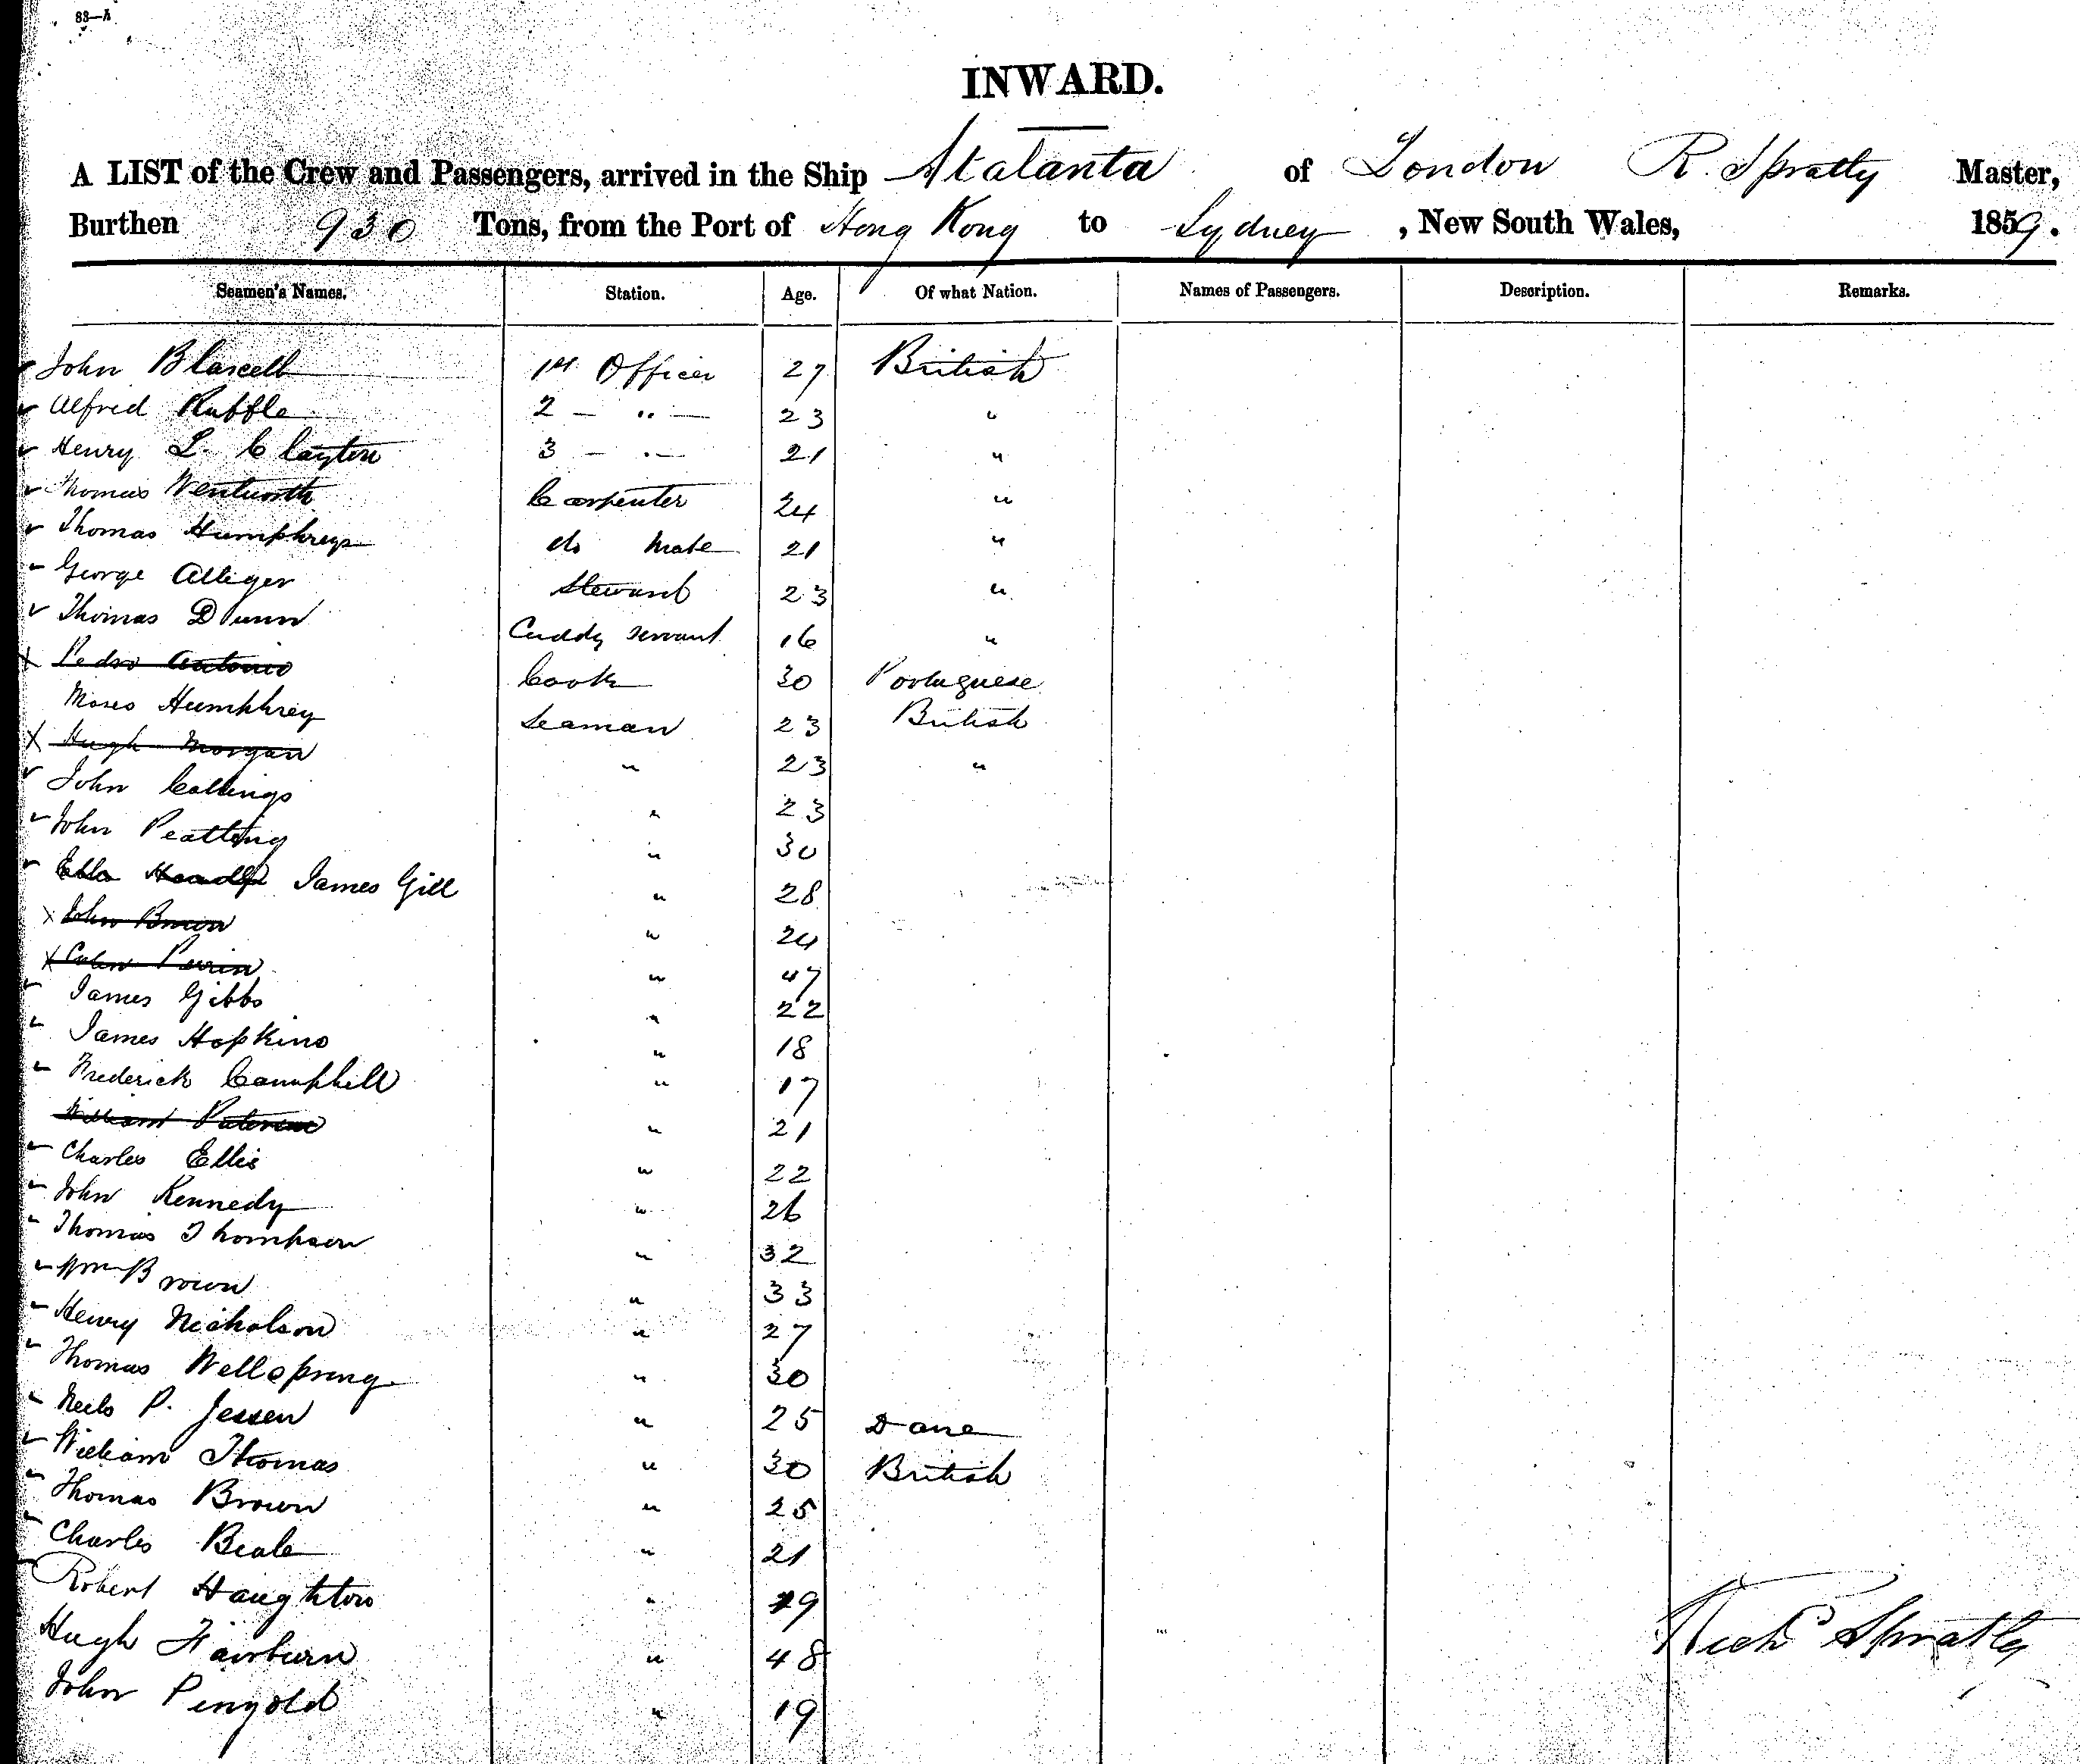 83—h
INWARD.
A LIST of the Crew and Passengers, arrived in the Ship Atalanta of London R. Spratly Master,
Burthen 930 Tons, from the Port of Hong Kong to Sydney, New South Wales, 1859.
Seamen's Names. Station. Age. Of what Nation. Names of Passengers. Description. Remarks.
John Blascell 1st Officer 27 British
Alfred Ruffle 2 — " — 23 "
Henry L. Clayton 3 — " — 21 "
Thomas Wentworth Carpenter 24 "
Thomas Humphreys do Mate 21 "
George Alliger Steward 23 "
Thomas Dunn Cuddy servant 16 "
Pedro Antonio Cook 30 Portuguese
Moses Humphrey Seaman 23 British
Hugh Morgan " 23 "
John Collings " 23
John Peatling " 30
James Gill " 28
John Brown " 24
Perrin " 47
James Gibbs " 22
James Hopkins " 18
Frederick Campbell " 17
William " 21
Charles Ellis " 22
John Kennedy " 26
Thomas Thompson " 32
Wm Brown " 33
Henry Nicholson " 27
Thomas Wellspring " 30
Neils P. Jessen " 25 Dane
William Thomas " 30 British
Thomas Brown " 25
Charles Beale " 21
Robert Haughton " 19
Hugh Fairburn " 48
Richd Spratly
John Pingold " 19